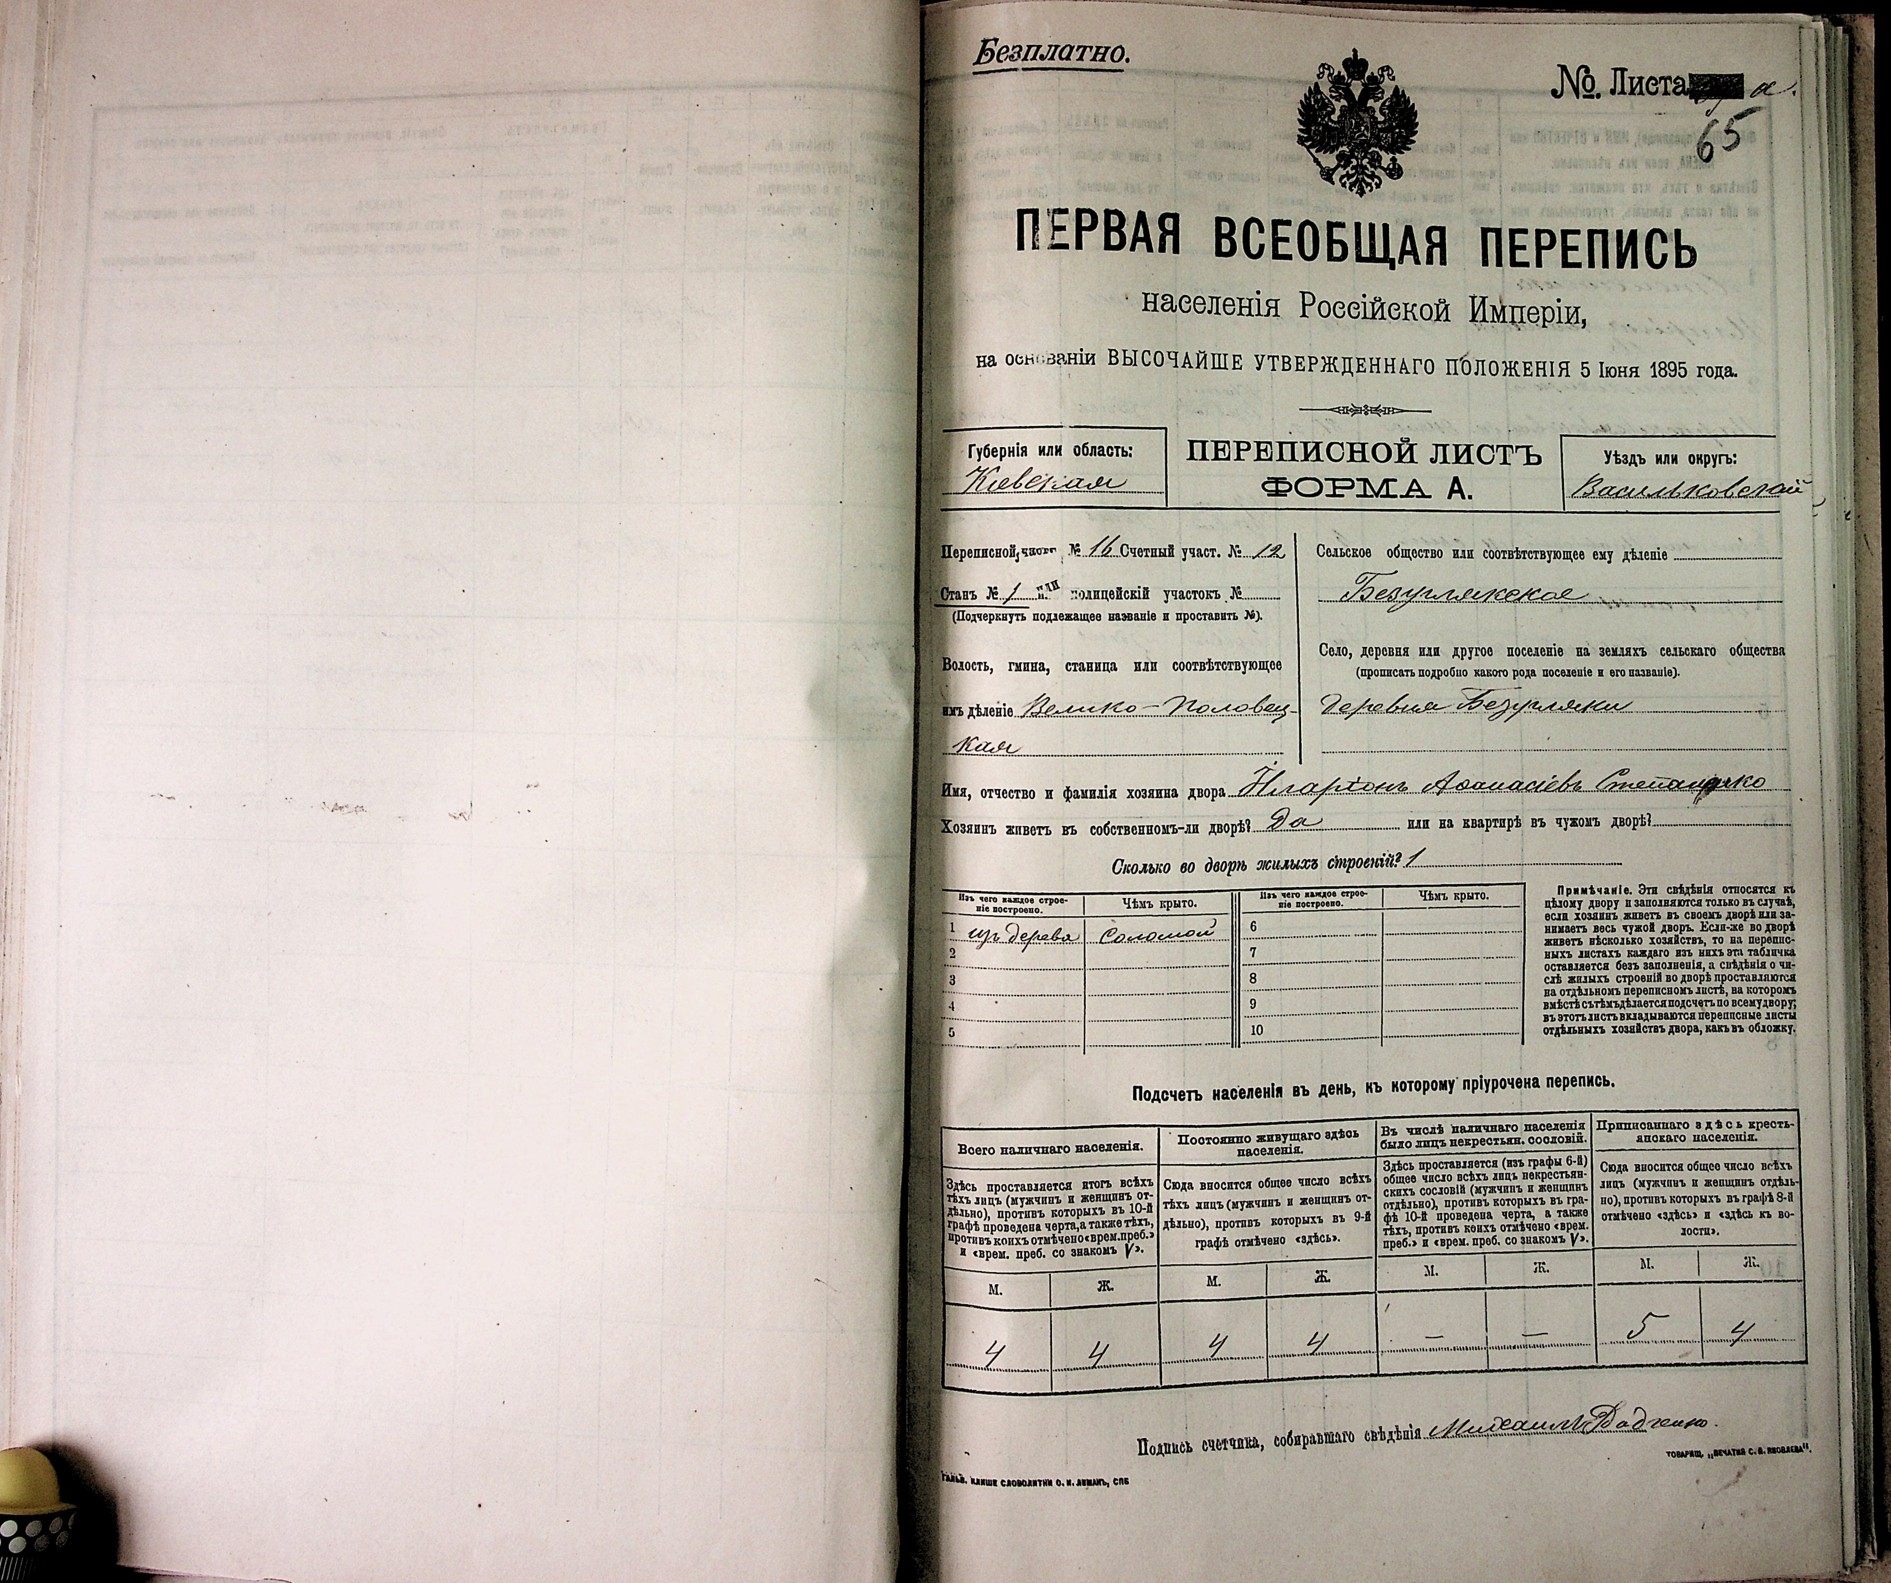 Безплатно.
№. Листа а.
65
ПЕРВАЯ ВСЕОБЩАЯ ПЕРЕПИСЬ
населенія Россійской Имперіи,
на основаніи ВЫСОЧАЙШЕ УТВЕРЖДЕННАГО ПОЛОЖЕНІЯ 5 Іюня 1895 года.
Губернія или область:
Кіевская
ПЕРЕПИСНОЙ ЛИСТЪ
ФОРМА А.
Уѣздъ или округъ:
Васильковскій
Переписной участ. № 16 Счетный участ. № 12
Станъ № 1 или полицейскій участокъ №
(Подчеркнуть подлежащее названіе и проставить №).
Волость, гмина, станица или соотвѣтствующее
имъ дѣленіе Велико-Половец-
кая
Сельское общество или соотвѣтствующее ему дѣленіе
Безуглякское
Село, деревня или другое поселеніе на земляхъ сельскаго общества
(прописать подробно какого рода поселеніе и его названіе).
деревня Безугляки
Имя, отчество и фамилія хозяина двора Иларіонъ Аѳанасіевъ
Хозяинъ живетъ въ собственномъ-ли дворѣ? Да или на квартирѣ въ чужомъ дворѣ?
Сколько во дворѣ жилыхъ строеній? 1
Изъ чего каждое строе-
ніе построено.
Чѣмъ крыто.
1 изъ дерева соломой
2
3
4
5
Изъ чего каждое строе-
ніе построено.
Чѣмъ крыто.
6
7
8
9
10
Примѣчаніе. Эти свѣдѣнія относятся къ
цѣлому двору и заполняются только въ случаѣ,
если хозяинъ живетъ въ своемъ дворѣ или за-
нимаетъ весь чужой дворъ. Если-же во дворѣ
живетъ нѣсколько хозяйствъ, то на перепис-
ныхъ листахъ каждаго изъ нихъ эта табличка
оставляется безъ заполненія, а свѣдѣнія о чи-
слѣ жилыхъ строеній во дворѣ проставляются
на отдѣльномъ переписномъ листѣ, на которомъ
вмѣстѣ съ тѣмъ дѣлается подсчетъ по всему двору;
въ этотъ листъ вкладываются переписные листы
отдѣльныхъ хозяйствъ двора, какъ въ обложку.
Подсчетъ населенія въ день, къ которому пріурочена перепись.
Всего наличнаго населенія.
Здѣсь проставляется итогъ всѣхъ
тѣхъ лицъ (мужчинъ и женщинъ от-
дѣльно), противъ которыхъ въ 10-й
графѣ проведена черта, а также тѣхъ,
противъ коихъ отмѣчено «врем. преб.»
и «врем. преб. со знакомъ V».
М. Ж.
4 4
Постоянно живущаго здѣсь
населенія.
Сюда вносится общее число всѣхъ
тѣхъ лицъ (мужчинъ и женщинъ от-
дѣльно), противъ которыхъ въ 9-й
графѣ отмѣчено «здѣсь».
М. Ж.
4 4
Въ числѣ наличнаго населенія
было лицъ некрестьян. сословій.
Здѣсь проставляется (изъ графы 6-й)
общее число всѣхъ лицъ некрестьян-
скихъ сословій (мужчинъ и женщинъ
отдѣльно), противъ которыхъ въ гра-
фѣ 10-й проведена черта, а также
тѣхъ, противъ коихъ отмѣчено «врем.
преб.» и «врем. преб. со знакомъ V».
М. Ж.
— —
Приписаннаго здѣсь кресть-
янскаго населенія.
Сюда вносится общее число всѣхъ
лицъ (мужчинъ и женщинъ отдѣль-
но), противъ которыхъ въ графѣ 8-й
отмѣчено «здѣсь» и «здѣсь къ во-
лости».
М. Ж.
5 4
Подпись счетчика, собиравшаго свѣдѣнія Михаилъ
ТОВАРИЩ. „ПЕЧАТНЯ С. П. ЯКОВЛЕВА".
ГАЛЬВ. КЛИШЕ СЛОВОЛИТНИ О. И. ЛЕМАНЪ, СПБ